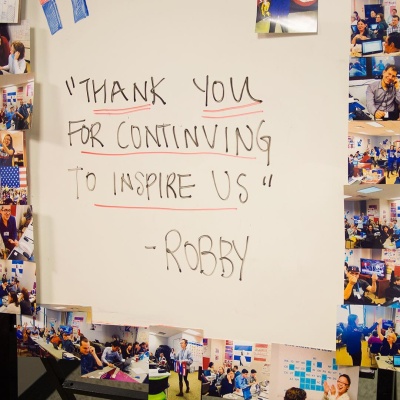 "THANK YOU
FOR CONTINVING
TO INSPIRE US"
-ROBBY